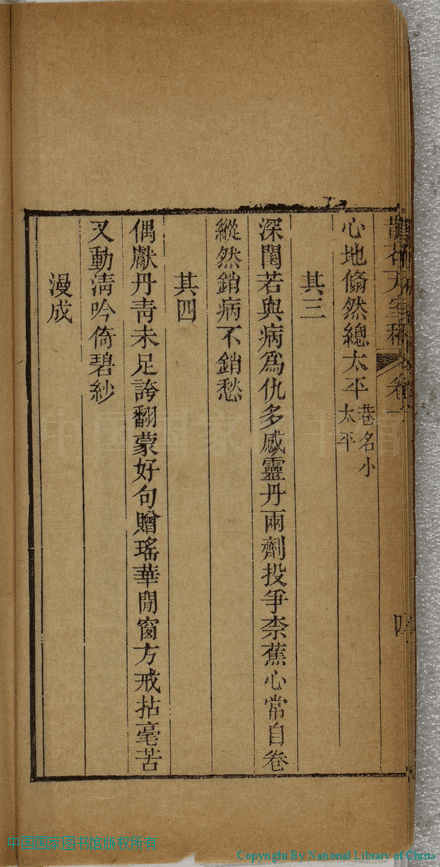 心地翛然總太平巷名小太平
其三
深閨若與病為仇多感靈丹兩劑投爭柰蕉心常自卷
縱然銷病不銷愁
其四
偶獻丹青未足誇翻蒙好句贈瑤華閒窗方戒拈毫苦
又動淸吟倚碧紗
漫成
中国国家图书馆版权所有
Copyright By National Library of China